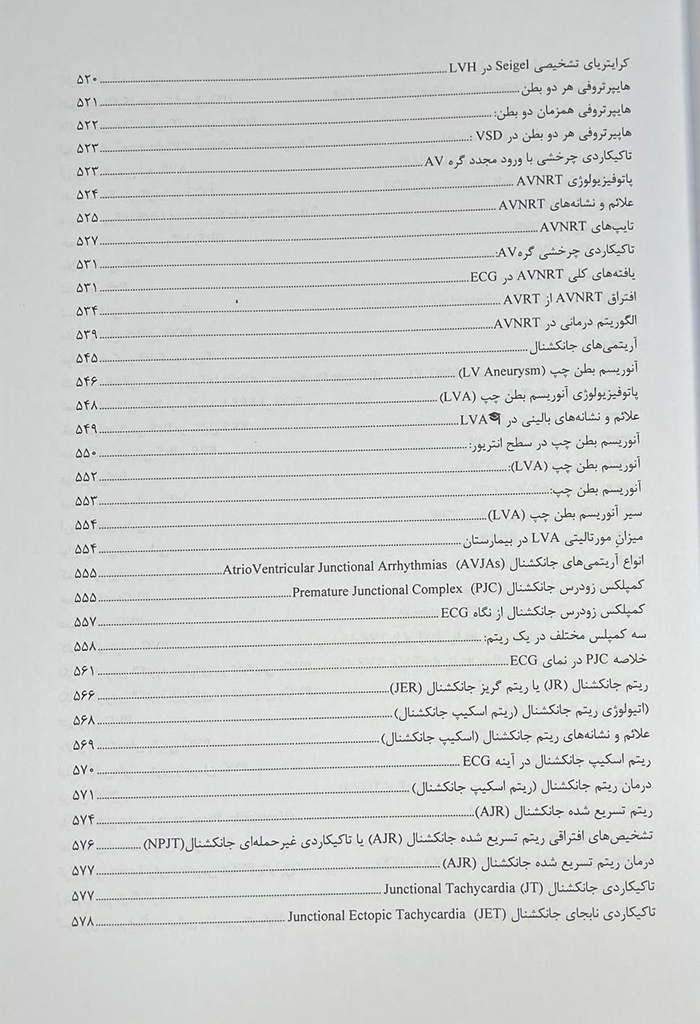 کرایتریای تشخیصی Seigel در LVH ................ ۵۲۰
هایپرتروفی هر دو بطن ................ ۵۲۱
هایپرتروفی همزمان دو بطن: ................ ۵۲۲
هایپرتروفی هر دو بطن در VSD : ................ ۵۲۳
تاکیکاردی چرخشی با ورود مجدد گره AV ................ ۵۲۳
پاتوفیزیولوژی AVNRT ................ ۵۲۴
علائم و نشانه‌های AVNRT ................ ۵۲۵
تایپ‌های AVNRT ................ ۵۲۷
تاکیکاردی چرخشی گره AV: ................ ۵۳۱
یافته‌های کلی AVNRT در ECG ................ ۵۳۱
افتراق AVNRT از AVRT ................ ۵۳۴
الگوریتم درمانی در AVNRT ................ ۵۳۹
آریتمی‌های جانکشنال ................ ۵۴۵
آنوریسم بطن چپ (LV Aneurysm) ................ ۵۴۶
پاتوفیزیولوژی آنوریسم بطن چپ (LVA) ................ ۵۴۸
علائم و نشانه‌های بالینی در LVA ................ ۵۴۹
آنوریسم بطن چپ در سطح انتریور: ................ ۵۵۰
آنوریسم بطن چپ (LVA): ................ ۵۵۲
آنوریسم بطن چپ: ................ ۵۵۳
سیر آنوریسم بطن چپ (LVA) ................ ۵۵۴
میزان مورتالیتی LVA در بیمارستان ................ ۵۵۴
انواع آریتمی‌های جانکشنال AtrioVentricular Junctional Arrhythmias (AVJAs) ................ ۵۵۵
کمپلکس زودرس جانکشنال Premature Junctional Complex (PJC) ................ ۵۵۵
کمپلکس زودرس جانکشنال از نگاه ECG ................ ۵۵۷
سه کمپلس مختلف در یک ریتم: ................ ۵۵۸
خلاصه PJC در نمای ECG ................ ۵۶۱
ریتم جانکشنال (JR) یا ریتم گریز جانکشنال (JER) ................ ۵۶۶
(اتیولوژی ریتم جانکشنال (ریتم اسکیپ جانکشنال) ................ ۵۶۸
علائم و نشانه‌های ریتم جانکشنال (اسکیپ جانکشنال) ................ ۵۶۹
ریتم اسکیپ جانکشنال در آینه ECG ................ ۵۷۰
درمان ریتم جانکشنال (ریتم اسکیپ جانکشنال) ................ ۵۷۱
ریتم تسریع شده جانکشنال (AJR) ................ ۵۷۴
تشخیص‌های افتراقی ریتم تسریع شده جانکشنال (AJR) یا تاکیکاردی غیرحمله‌ای جانکشنال(NPJT) ................ ۵۷۶
درمان ریتم تسریع شده جانکشنال (AJR) ................ ۵۷۷
تاکیکاردی جانکشنال Junctional Tachycardia (JT) ................ ۵۷۷
تاکیکاردی نابجای جانکشنال Junctional Ectopic Tachycardia (JET) ................ ۵۷۸